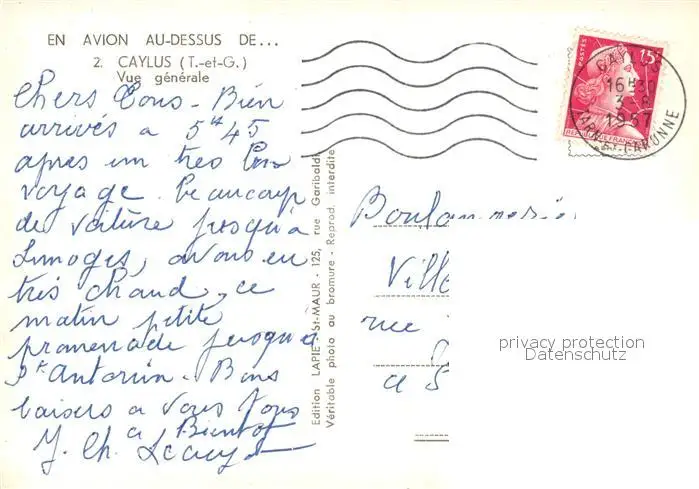 EN AVION AU-DESSUS DE...
2. CAYLUS (T.-et-G.)
Vue générale
Chers Tous - Bien
arrivés a 5h45
apres un tres bon
voyage. beaucoup
de voiture jusqu'a
Limoges, avons eu
très chaud, ce
matin petite
promenade jusqu'a
St Antonin. Bons
baisers a Vous Tous
a Bientot
J. Ch.
Edition LAPIE - St-MAUR - 125, rue Garibaldi
Véritable photo au bromure - Reprod. interdite
POSTES
15F
REPUBLIQUE FRANÇAISE
CAYLUS
16H30
3-8
1957
TARN-ET-GARONNE
Ville
rue
a S
privacy protection
Datenschutz